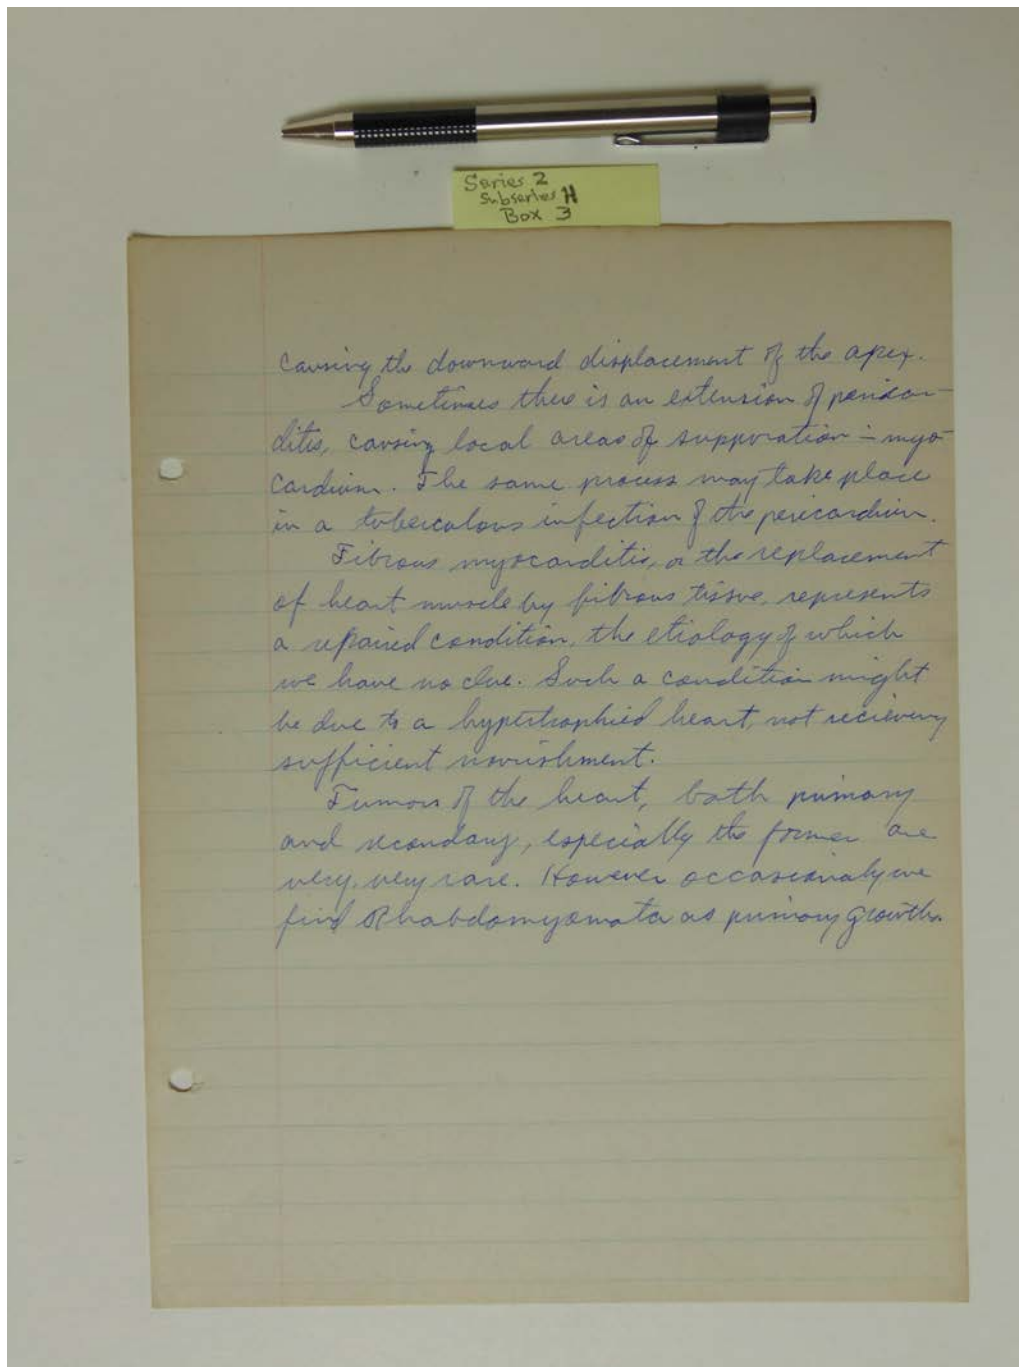 Series 2
Subseries H
Box 3
causing the downward displacement of the apex.
Sometimes there is an extension of pericar-
ditis, causing local areas of suppuration - myo-
cardium. The same process may take place
in a tuberculous infection of the pericardium.
Fibrous myocarditis, or the replacement
of heart muscle by fibrous tissue, represents
a repaired condition, the etiology of which
we have no clue. Such a condition might
be due to a hypertrophied heart, not recieving
sufficient nourishment.
Tumors of the heart, both primary
and secondary, especially the former are
very, very rare. However occasionaly we
find Rhabdomyomata as primary growths.